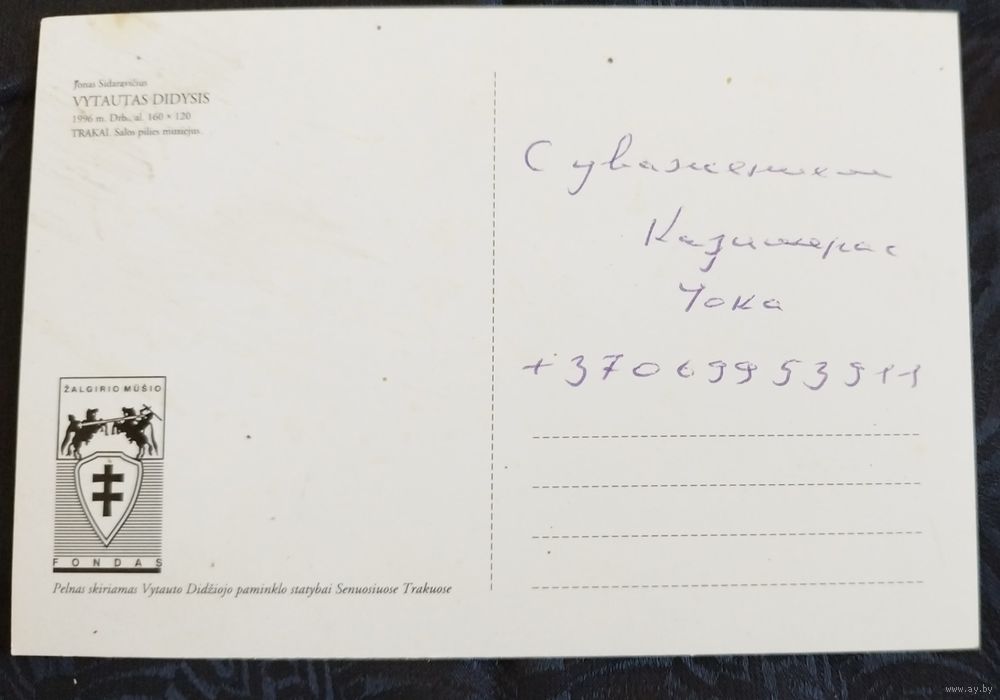 Jonas Sidaravičius
VYTAUTAS DIDYSIS
1996 m. Drb., al. 160 × 120
TRAKAI. Salos pilies muziejus.
С уважением
Казимерас
Чока
+37069953911
ŽALGIRIO MŪŠIO
FONDAS
Pelnas skiriamas Vytauto Didžiojo paminklo statybai Senuosiuose Trakuose
www.ay.by